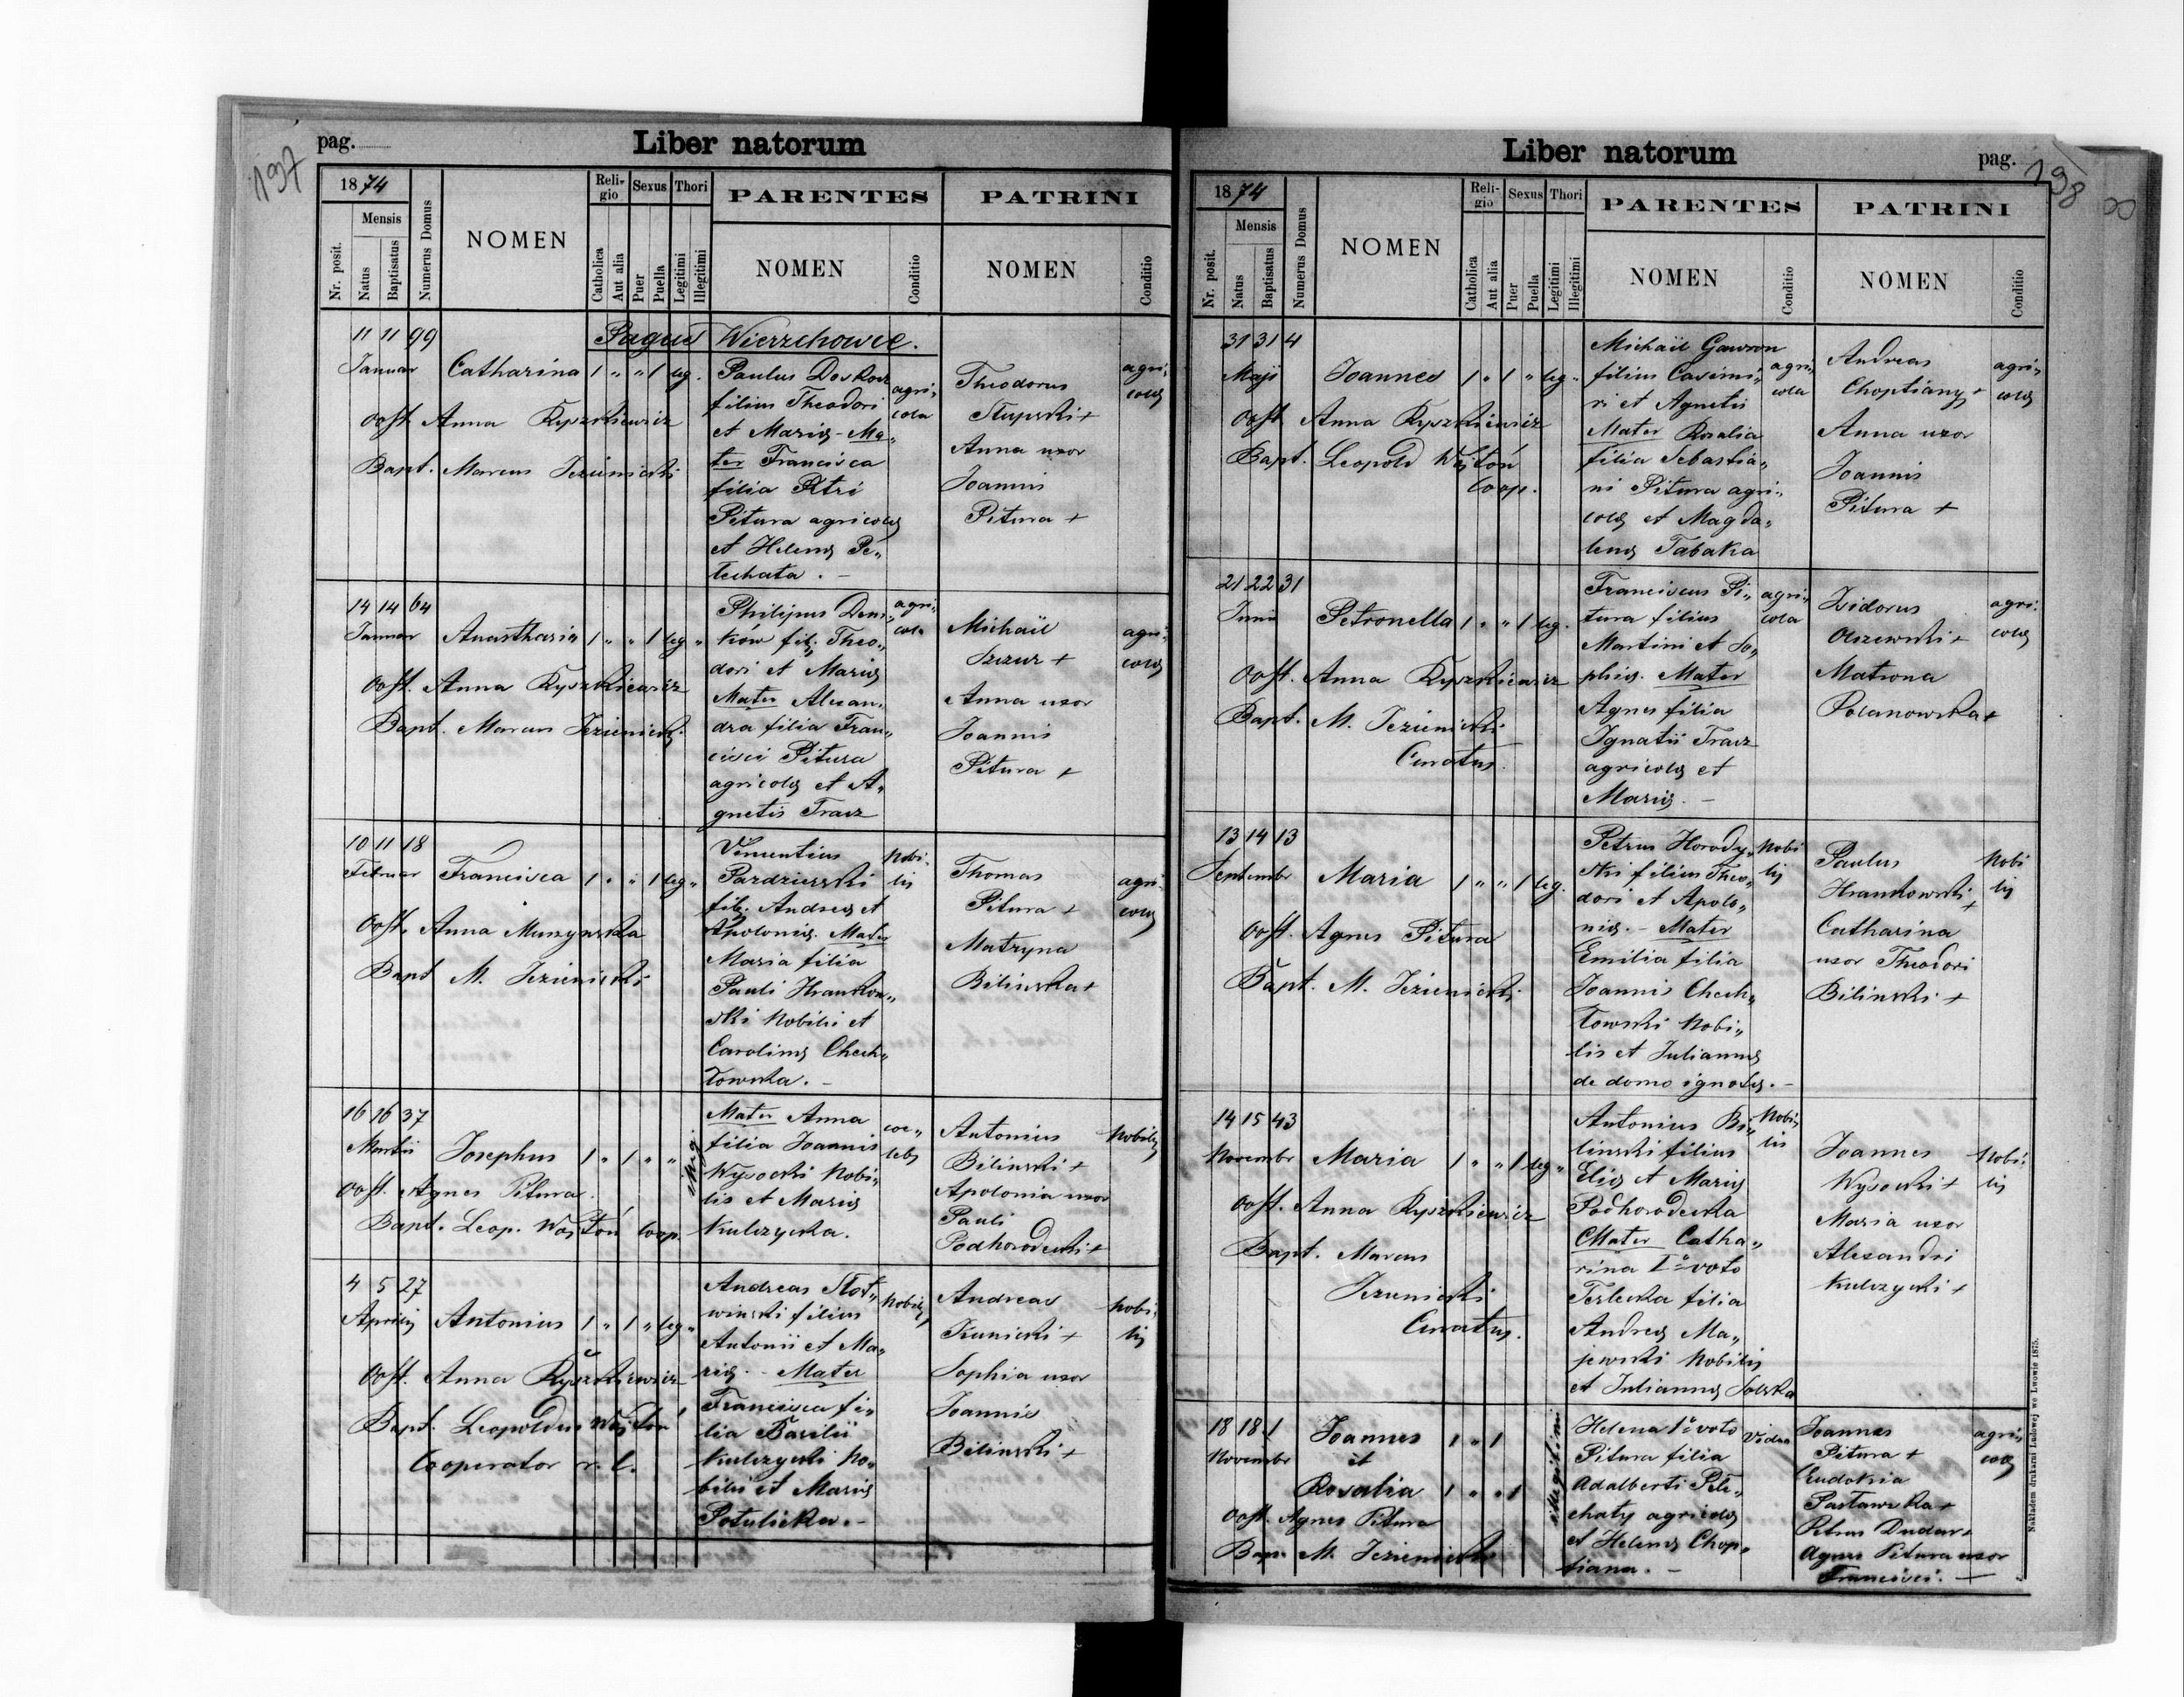 197
pag.
Liber natorum
1874
Mensis
Nr. posit.
Natus
Baptisatus
Numerus Domus
NOMEN
Reli-
gio
Catholica
Aut alia
Sexus
Puer
Puella
Thori
Legitimi
Illegitimi
PARENTES
NOMEN
Conditio
PATRINI
NOMEN
Conditio
Pagus Wierzchowce.
11 11 99
Januar Catharina 1 " " 1 leg.
Obst. Anna Kyszkiewicz
Bapt. Marcus Jezienicki
Paulus Doskocz
filius Theodori
et Mariæ - Ma„
ter Francisca
filia Petri
Pitura agricolæ
et Helenæ Pe„
techata. -
agri„
cola
Theodorus
Słupski +
Anna uxor
Joannis
Pitura +
agri„
colæ
14 14 64
Januar Anasthasia 1 " " 1 leg "
Obst. Anna Kyszkiewicz
Bapt. Marcus Jezienicki
Philipus Dem„
ków fil; Theo„
dori et Mariæ
Mater Alexan„
dra filia Fran„
cisci Pitura
agricolæ et A„
gnetis Tracz
agri„
cola
Michaël
Szczur +
Anna uxor
Joannis
Pitura +
agri„
colæ
10 11 18
Februar Francisca 1 " " 1 leg "
Obst. Anna Muszyńska
Bapt M. Jezienicki
Vincentius
Pazdzierski
fil; Andreæ et
Apoloniæ. Mater
Maria filia
Pauli Hrankow„
ski Nobilis et
Carolinæ Chech„
łowska. -
Nobi„
lis
Thomas
Pitura +
Matryna
Bilińska +
agri„
colæ
16 16 37
Martii Josephus 1 " 1 " " illeg.
Obst. Agnes Pitura.
Bapt. Leop. Wojtoń Coop.
Mater Anna
filia Joannis
Wysocki Nobi„
lis et Mariæ
Kulczycka.
coe„
lebs
Antonius
Biliński +
Apolonia uxor
Pauli
Podhorodecki +
Nobilis
4 5 27
Aprilis Antonius 1 " 1 " leg "
Obst. Anna Kyszkiewicz
Bapt. Leopoldus Wojtoń
Cooperator r. l.
Andreas Słot„
winski filius
Antonii et Ma„
riæ. - Mater
Francisca fi„
lia Basilii
Kulczycki No„
bilis et Mariæ
Potulicka. -
Nobilis
Andreas
Kunicki +
Sophia uxor
Joannis
Biliński +
Nobi„
lis
Liber natorum
pag.
198
8
1874
Mensis
Nr. posit.
Natus
Baptisatus
Numerus Domus
NOMEN
Reli-
gio
Catholica
Aut alia
Sexus
Puer
Puella
Thori
Legitimi
Illegitimi
PARENTES
NOMEN
Conditio
PATRINI
NOMEN
Conditio
31 31 4
Maji Joannes 1 " 1 " leg "
Obst. Anna Kyszkiewicz
Bapt. Leopold Wojtoń
Coop.
Michaël Gawron
filius Casimi„
ri et Agnetis
Mater Rosalia
filia Sebastia„
ni Pitura agri„
colæ et Magda„
lenæ Tabaka
agri„
cola
Andreas
Choptiany +
Anna uxor
Joannis
Pitura +
agri„
colæ
21 22 31
Junii Petronella 1 " " 1 leg.
Obst. Anna Kyszkiewicz
Bapt. M. Jezienicki
Curatus
Franciscus Pi„
tura filius
Martini et So„
phiæ. Mater
Agnes filia
Ignatii Tracz
agricolæ et
Mariæ. -
agri„
cola
Izidorus
Olszewski +
Matrona
Polanowska +
agri„
colæ
13 14 13
Septembr Maria 1 " " 1 leg.
Obst. Agnes Pitura
Bapt. M. Jezienicki
Petrus Horody„
ski filius Theo„
dori et Apolo„
niæ. - Mater
Emilia filia
Joannis Chech„
łowski Nobi„
lis et Juliannæ
de domo ignotæ. -
Nobi
lis
Paulus
Hrankowski +
Catharina
uxor Theodori
Bilinski +
Nobi
lis
14 15 43
Novembr Maria 1 " " 1 leg "
Obst. Anna Kyszkiewicz
Bapt. Marcus
Jezienicki
Curatus.
Antonius Bi„
linski filius
Eliæ et Mariæ
Podhorodecka
Mater Catha„
rina Iº voto
Terlecka filia
Andreæ Ma„
jewski Nobilis
et Juliannæ Solska
Nobi„
lis
Joannes
Wysocki +
Maria uxor
Alexandri
Kulczycki +
Nobi„
lis
18 18 1
Novembr
Joannes 1 " 1
et
Rosalia 1 " " 1
illegitimi
Obst. Agnes Pitura
Bap. M. Jezienicki
Helena 1º voto
Pitura filia
Adalberti Pete„
chaty agricolæ
et Helenæ Chop„
tiana. -
Vidua
Joannes
Pitura +
Eudokia
Pastawska +
Petrus Dudar +
Agnes Pitura uxor
Francisci. -
agri„
colæ
Nakładem drukarni Ludowej we Lwowie 1875.